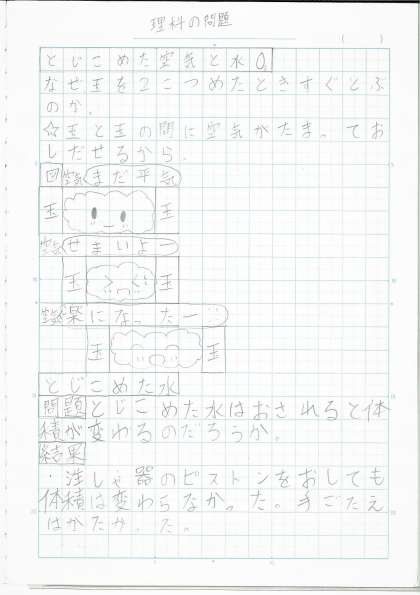 理科の問題
( )
とじこめた空気と水0.
なぜ玉を2こつめたときすぐとぶ
のか.
☆玉と玉の間に空気がたま。てお
しだせるから.
図 空気 まだ平気
玉 玉
空気 せまいよー
玉 玉
空気 楽になったー
玉 玉
とじこめた水
問題 とじこめた水はおされると体
積が変わるのだろうか.
結果
・注しゃ器のピストンをおしても
体積は変わらなか。た。手ごたえ
はかたか。た。